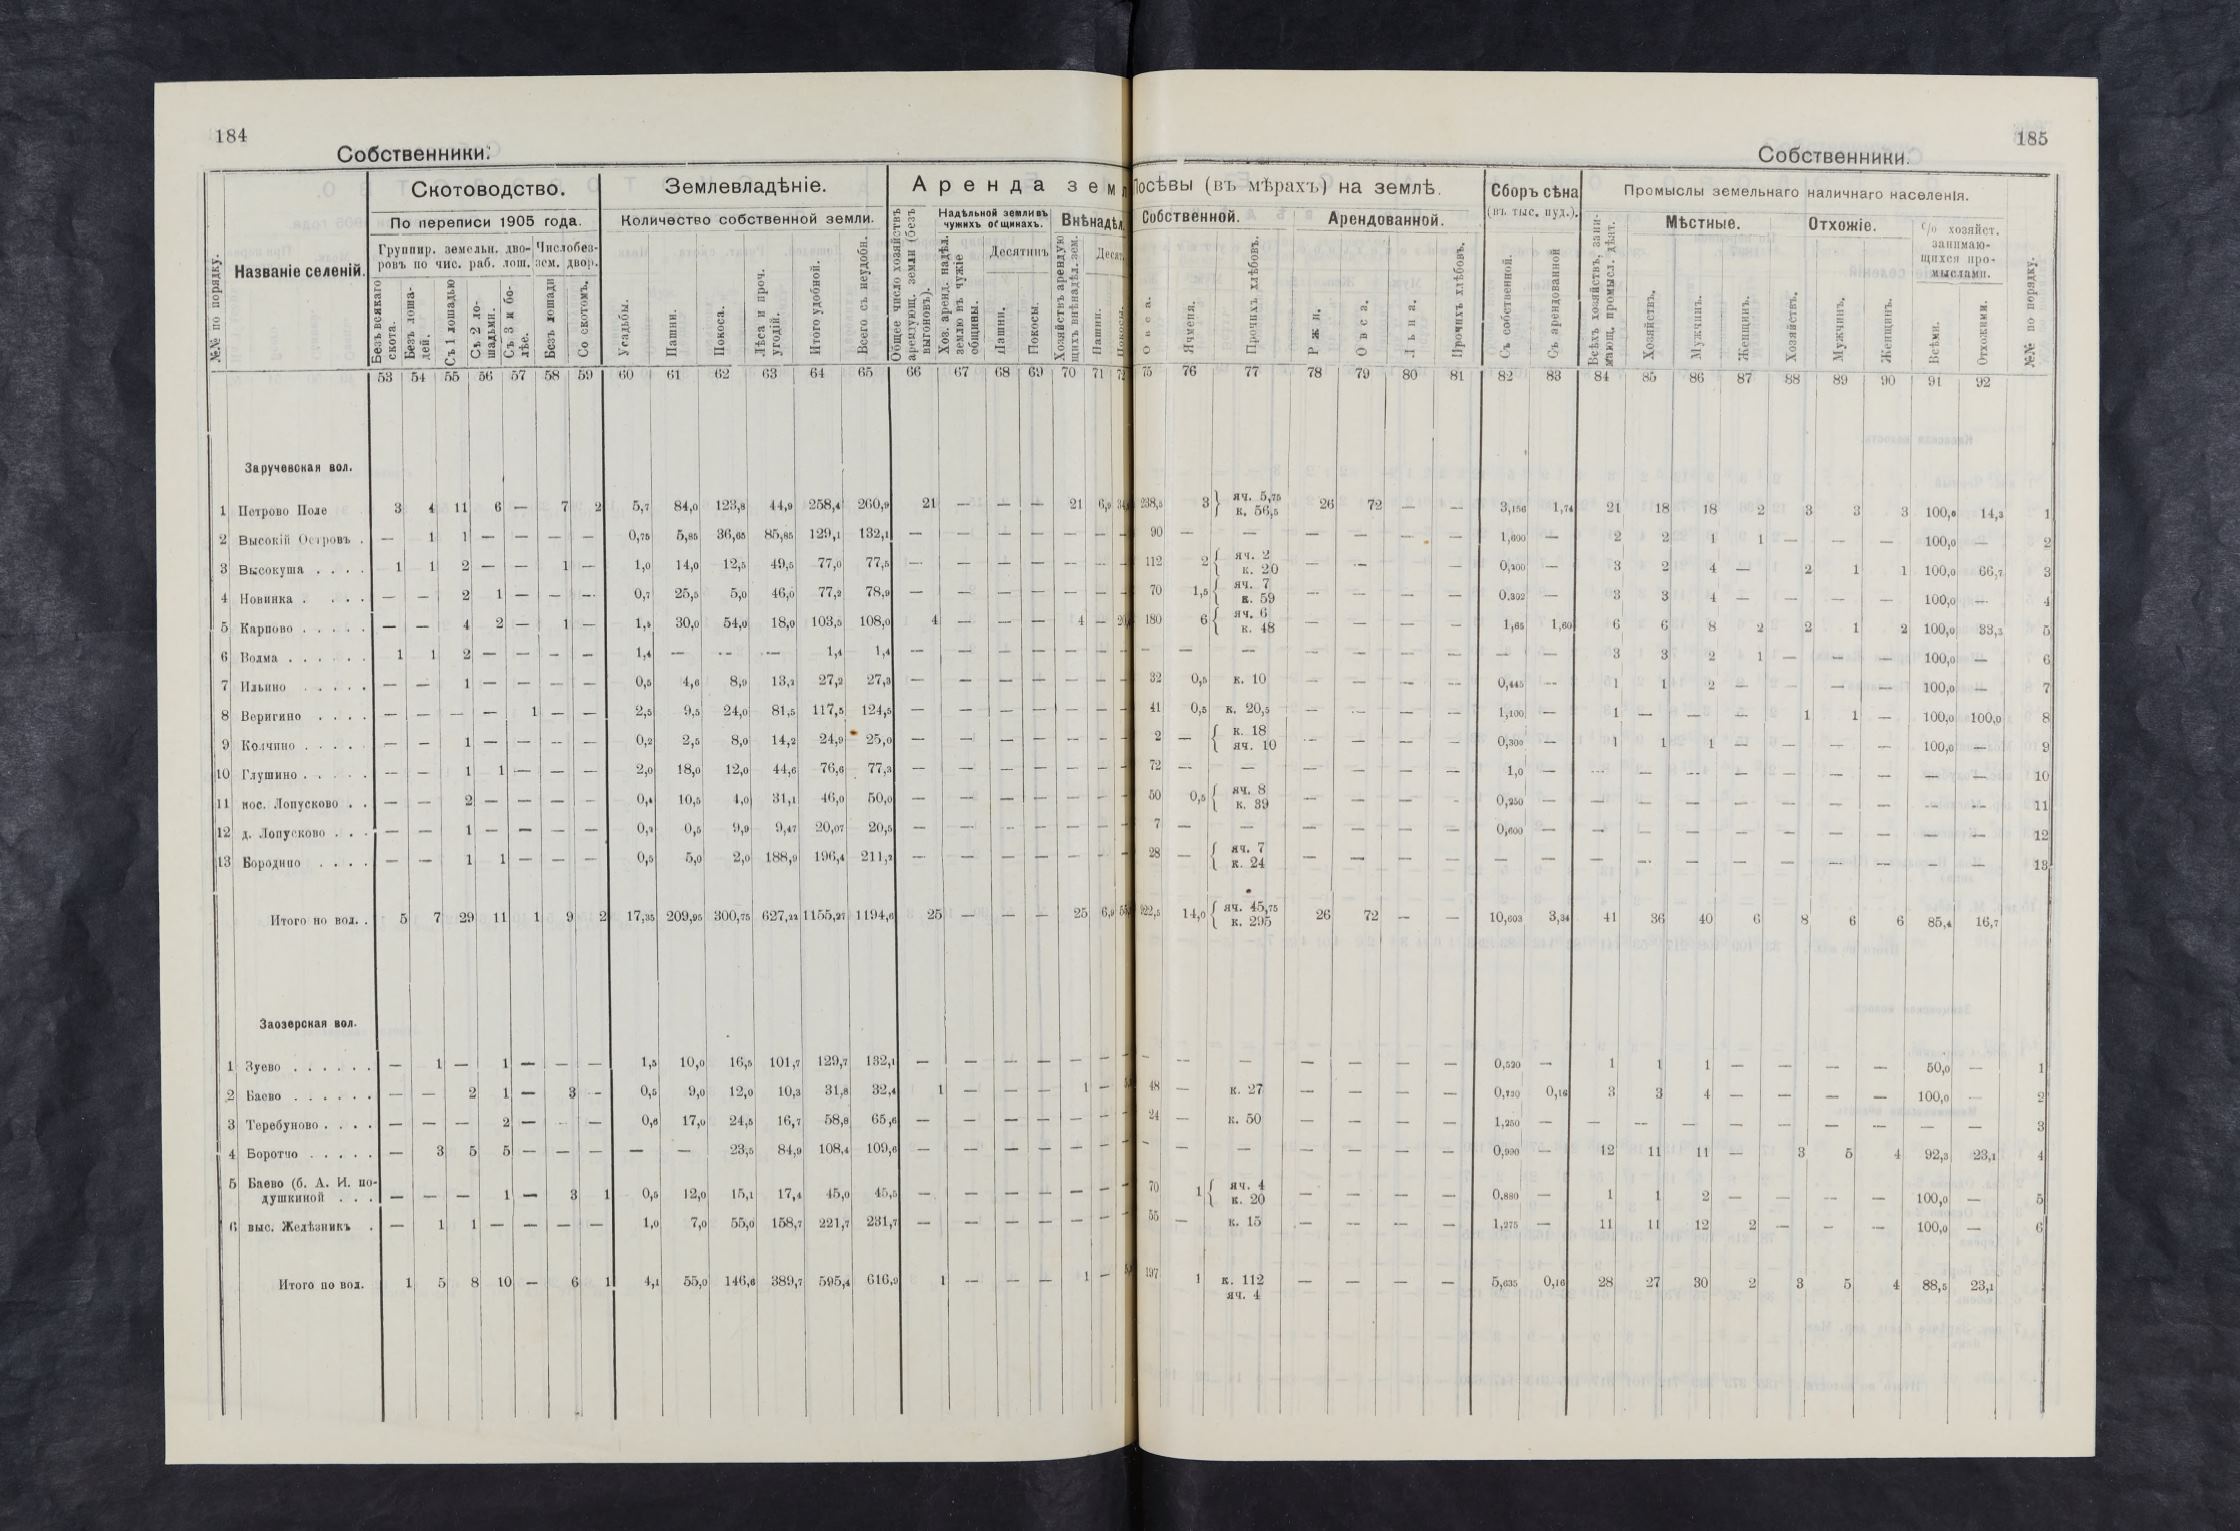 184
Собственники.
№№ по порядку.
Названіе селеній.
Скотоводство.
По переписи 1905 года.
Группир. земельн. дво-
ровъ по чис. раб. лош.
Число без-
зем. двор.
Безъ всякаго скота.
Безъ лоша-
дей.
Съ 1 лошадью
Съ 2 ло-
шадьми.
Съ 3 и бо-
лѣе.
Безъ лошади
Со скотомъ.
Землевладѣніе.
Количество собственной земли.
Усадьбы.
Пашни.
Покоса.
Лѣса и проч.
угодій.
Итого удобной.
Всего съ неудобн.
Аренда земл
Общее число хозяйствъ
арендующ. земли (безъ
выгоновъ).
Надѣльной земли въ
чужихъ общинахъ.
Хоз. аренд. надѣл.
землю въ чужіе
общины.
Десятинъ
Пашни.
Покосы.
Внѣнадѣл.
Хозяйствъ арендую
щихъ внѣнадѣл. зем.
Десят.
Пашни.
Покосы.
53 54 55 56 57 58 59 60 61 62 63 64 65 66 67 68 69 70 71 72
Заручевская вол.
1 Петрово Поле 3 4 11 6 — 7 2 5,7 84,0 123,8 44,9 258,4 260,9 21 — — — 21 6,9
2 Высокій Островъ . — 1 1 — — — — 0,75 5,85 36,65 85,85 129,1 132,1 — — — — — — —
3 Высокуша . . . . 1 1 2 — — 1 — 1,0 14,0 12,5 49,5 77,0 77,5 — — — — — — —
4 Новинка . . . . — — 2 1 — — — 0,7 25,5 5,0 46,0 77,2 78,9 — — — — — — —
5 Карпово . . . . . — — 4 2 — 1 — 1,5 30,0 54,0 18,0 103,5 108,0 4 — — — 4 —
6 Волма . . . . . . 1 1 2 — — — — 1,4 — — — 1,4 1,4 — — — — — — —
7 Ильино . . . . . — — 1 — — — — 0,5 4,6 8,9 13,2 27,2 27,3 — — — — — — —
8 Веригино . . . . — — — — 1 — — 2,5 9,5 24,0 81,5 117,5 124,5 — — — — — — —
9 Колчино . . . . . — — 1 — — — — 0,2 2,5 8,0 14,2 24,9 25,0 — — — — — — —
10 Глушино . . . . . — — 1 1 — — — 2,0 18,0 12,0 44,6 76,6 77,3 — — — — — — —
11 пос. Лопусково . . — — 2 — — — — 0,4 10,5 4,0 31,1 46,0 50,0 — — — — — — —
12 д. Лопусково . . . — — 1 — — — — 0,2 0,5 9,9 9,47 20,07 20,5 — — — — — — —
13 Бородино . . . . — — 1 1 — — — 0,5 5,0 2,0 188,9 196,4 211,2 — — — — — — —
Итого по вол. . 5 7 29 11 1 9 2 17,35 209,95 300,75 627,22 1155,27 1194,6 25 — — — 25 6,9
Заозерская вол.
1 Зуево . . . . . . — 1 — 1 — — — 1,5 10,0 16,5 101,7 129,7 132,1 — — — — — — —
2 Баево . . . . . . — — 2 1 — 3 — 0,5 9,0 12,0 10,3 31,8 32,4 1 — — — 1 —
3 Теребуново . . . . — — — 2 — — — 0,6 17,0 24,5 16,7 58,8 65,6 — — — — — — —
4 Боротно . . . . . — 3 5 5 — — — — — 23,5 84,9 108,4 109,6 — — — — — — —
5 Баево (б. А. И. по-
душкиной . . . — — — 1 — 3 1 0,5 12,0 15,1 17,4 45,0 45,5 — — — — — — —
6 выс. Желѣзникъ . — 1 1 — — — — 1,0 7,0 55,0 158,7 221,7 231,7 — — — — — — —
Итого по вол. 1 5 8 10 — 6 1 4,1 55,0 146,6 389,7 595,4 616,9 1 — — — 1 —
185
Собственники.
Посѣвы (въ мѣрахъ) на землѣ.
Собственной.
Овса.
Ячменя.
Прочихъ хлѣбовъ.
Арендованной.
Ржи.
Овса.
Льна.
Прочихъ хлѣбовъ.
Сборъ сѣна
(въ тыс. пуд.).
Съ собственной.
Съ арендованной
Промыслы земельнаго наличнаго населенія.
Всѣхъ хозяйствъ, зани-
мающ. промысл. дѣят.
Мѣстные.
Хозяйствъ.
Мужчинъ.
Женщинъ.
Отхожіе.
Хозяйствъ.
Мужчинъ.
Женщинъ.
% хозяйст.
занимаю-
щихся про-
мыслами.
Всѣми.
Отхожими.
№№ по порядку.
75 76 77 78 79 80 81 82 83 84 85 86 87 88 89 90 91 92
238,5 3 } яч. 5,75
к. 56,5 26 72 — — 3,156 1,74 21 18 18 2 3 3 3 100,0 14,3 1
90 — — — — — — 1,600 — 2 2 1 1 — — — 100,0 — 2
112 2 { яч. 2
к. 20 — — — — 0,200 — 3 2 4 — 2 1 1 100,0 66,7 3
70 1,5 { яч. 7
к. 59 — — — — 0,392 — 3 3 4 — — — — 100,0 — 4
180 6 { яч. 6
к. 48 — — — — 1,65 1,60 6 6 8 2 2 1 2 100,0 33,3 5
— — — — — — — — — 3 3 2 1 — — — 100,0 — 6
32 0,5 к. 10 — — — — 0,445 — 1 1 2 — — — — 100,0 — 7
41 0,5 к. 20,5 — — — — 1,100 — 1 — — — 1 1 — 100,0 100,0 8
2 — { к. 18
яч. 10 — — — — 0,300 — 1 1 1 — — — — 100,0 — 9
72 — — — — — — 1,0 — — — — — — — — — — 10
50 0,5 { яч. 8
к. 39 — — — — 0,250 — — — — — — — — — — 11
7 — — — — — — 0,600 — — — — — — — — — — 12
28 — { яч. 7
к. 24 — — — — — — — — — — — — — — — 13
922,5 14,0 { яч. 45,75
к. 295 26 72 — — 10,603 3,34 41 36 40 6 8 6 6 85,4 16,7
— — — — — — — 0,520 — 1 1 1 — — — — 50,0 — 1
48 — к. 27 — — — — 0,720 0,16 3 3 4 — — — — 100,0 — 2
24 — к. 50 — — — — 1,250 — — — — — — — — — — 3
— — — — — — — 0,990 — 12 11 11 — 3 5 4 92,3 23,1 4
70 1 { яч. 4
к. 20 — — — — 0,880 — 1 1 2 — — — — 100,0 — 5
55 — к. 15 — — — — 1,275 — 11 11 12 2 — — — 100,0 — 6
197 1 к. 112
яч. 4 — — — — 5,635 0,16 28 27 30 2 3 5 4 88,5 23,1